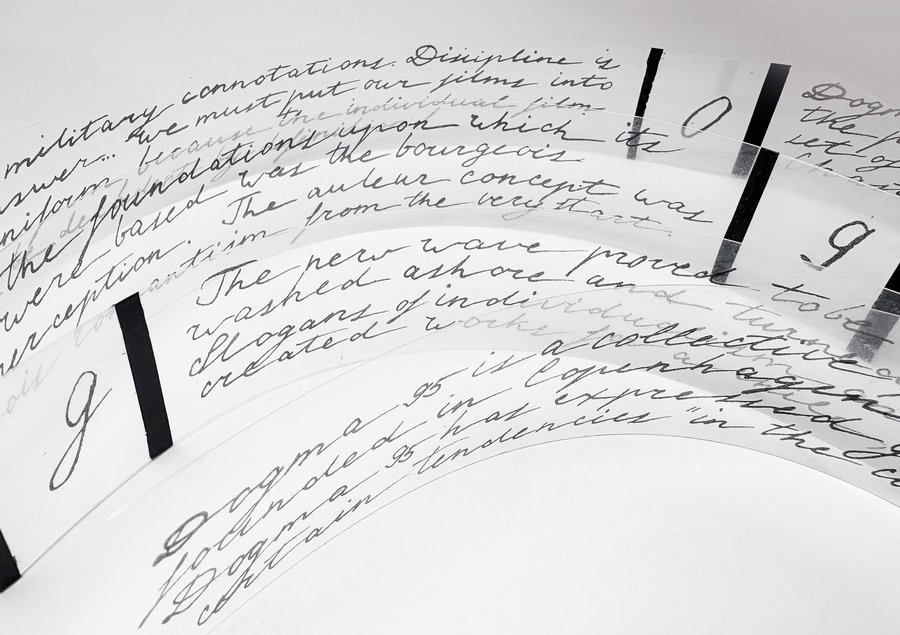 military connotations. Discipline is
answer... we must put our films into
uniform, because the individual film
the foundations upon which its
were based was the bourgeois
perception. The auteur concept was
romanticism from the very start
O
Dogm
the p
set of
g
The new wave proved to be
washed ashore and turn
Slogans of individu
created works for a
g
Dogma 95 is a collective
founded in Copenhagen
Dogma 95 has expressed g
certain tendencies "in the c